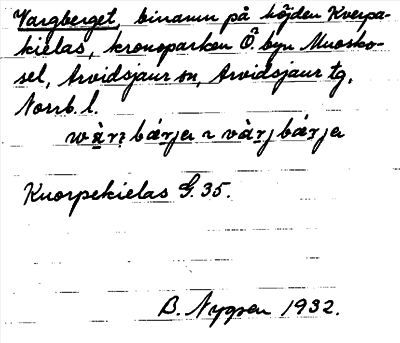 Vargberget, binamn på höjden Kverpe-
kielas, kronoparken Ö byn Muosko-
sel, Arvidsjaur sn, Arvidsjaur tg,
Norrb. l.
wàrg bárja ~ vàrj bárja
Kuorpekielas G. 35.
B. Nygren 1932.